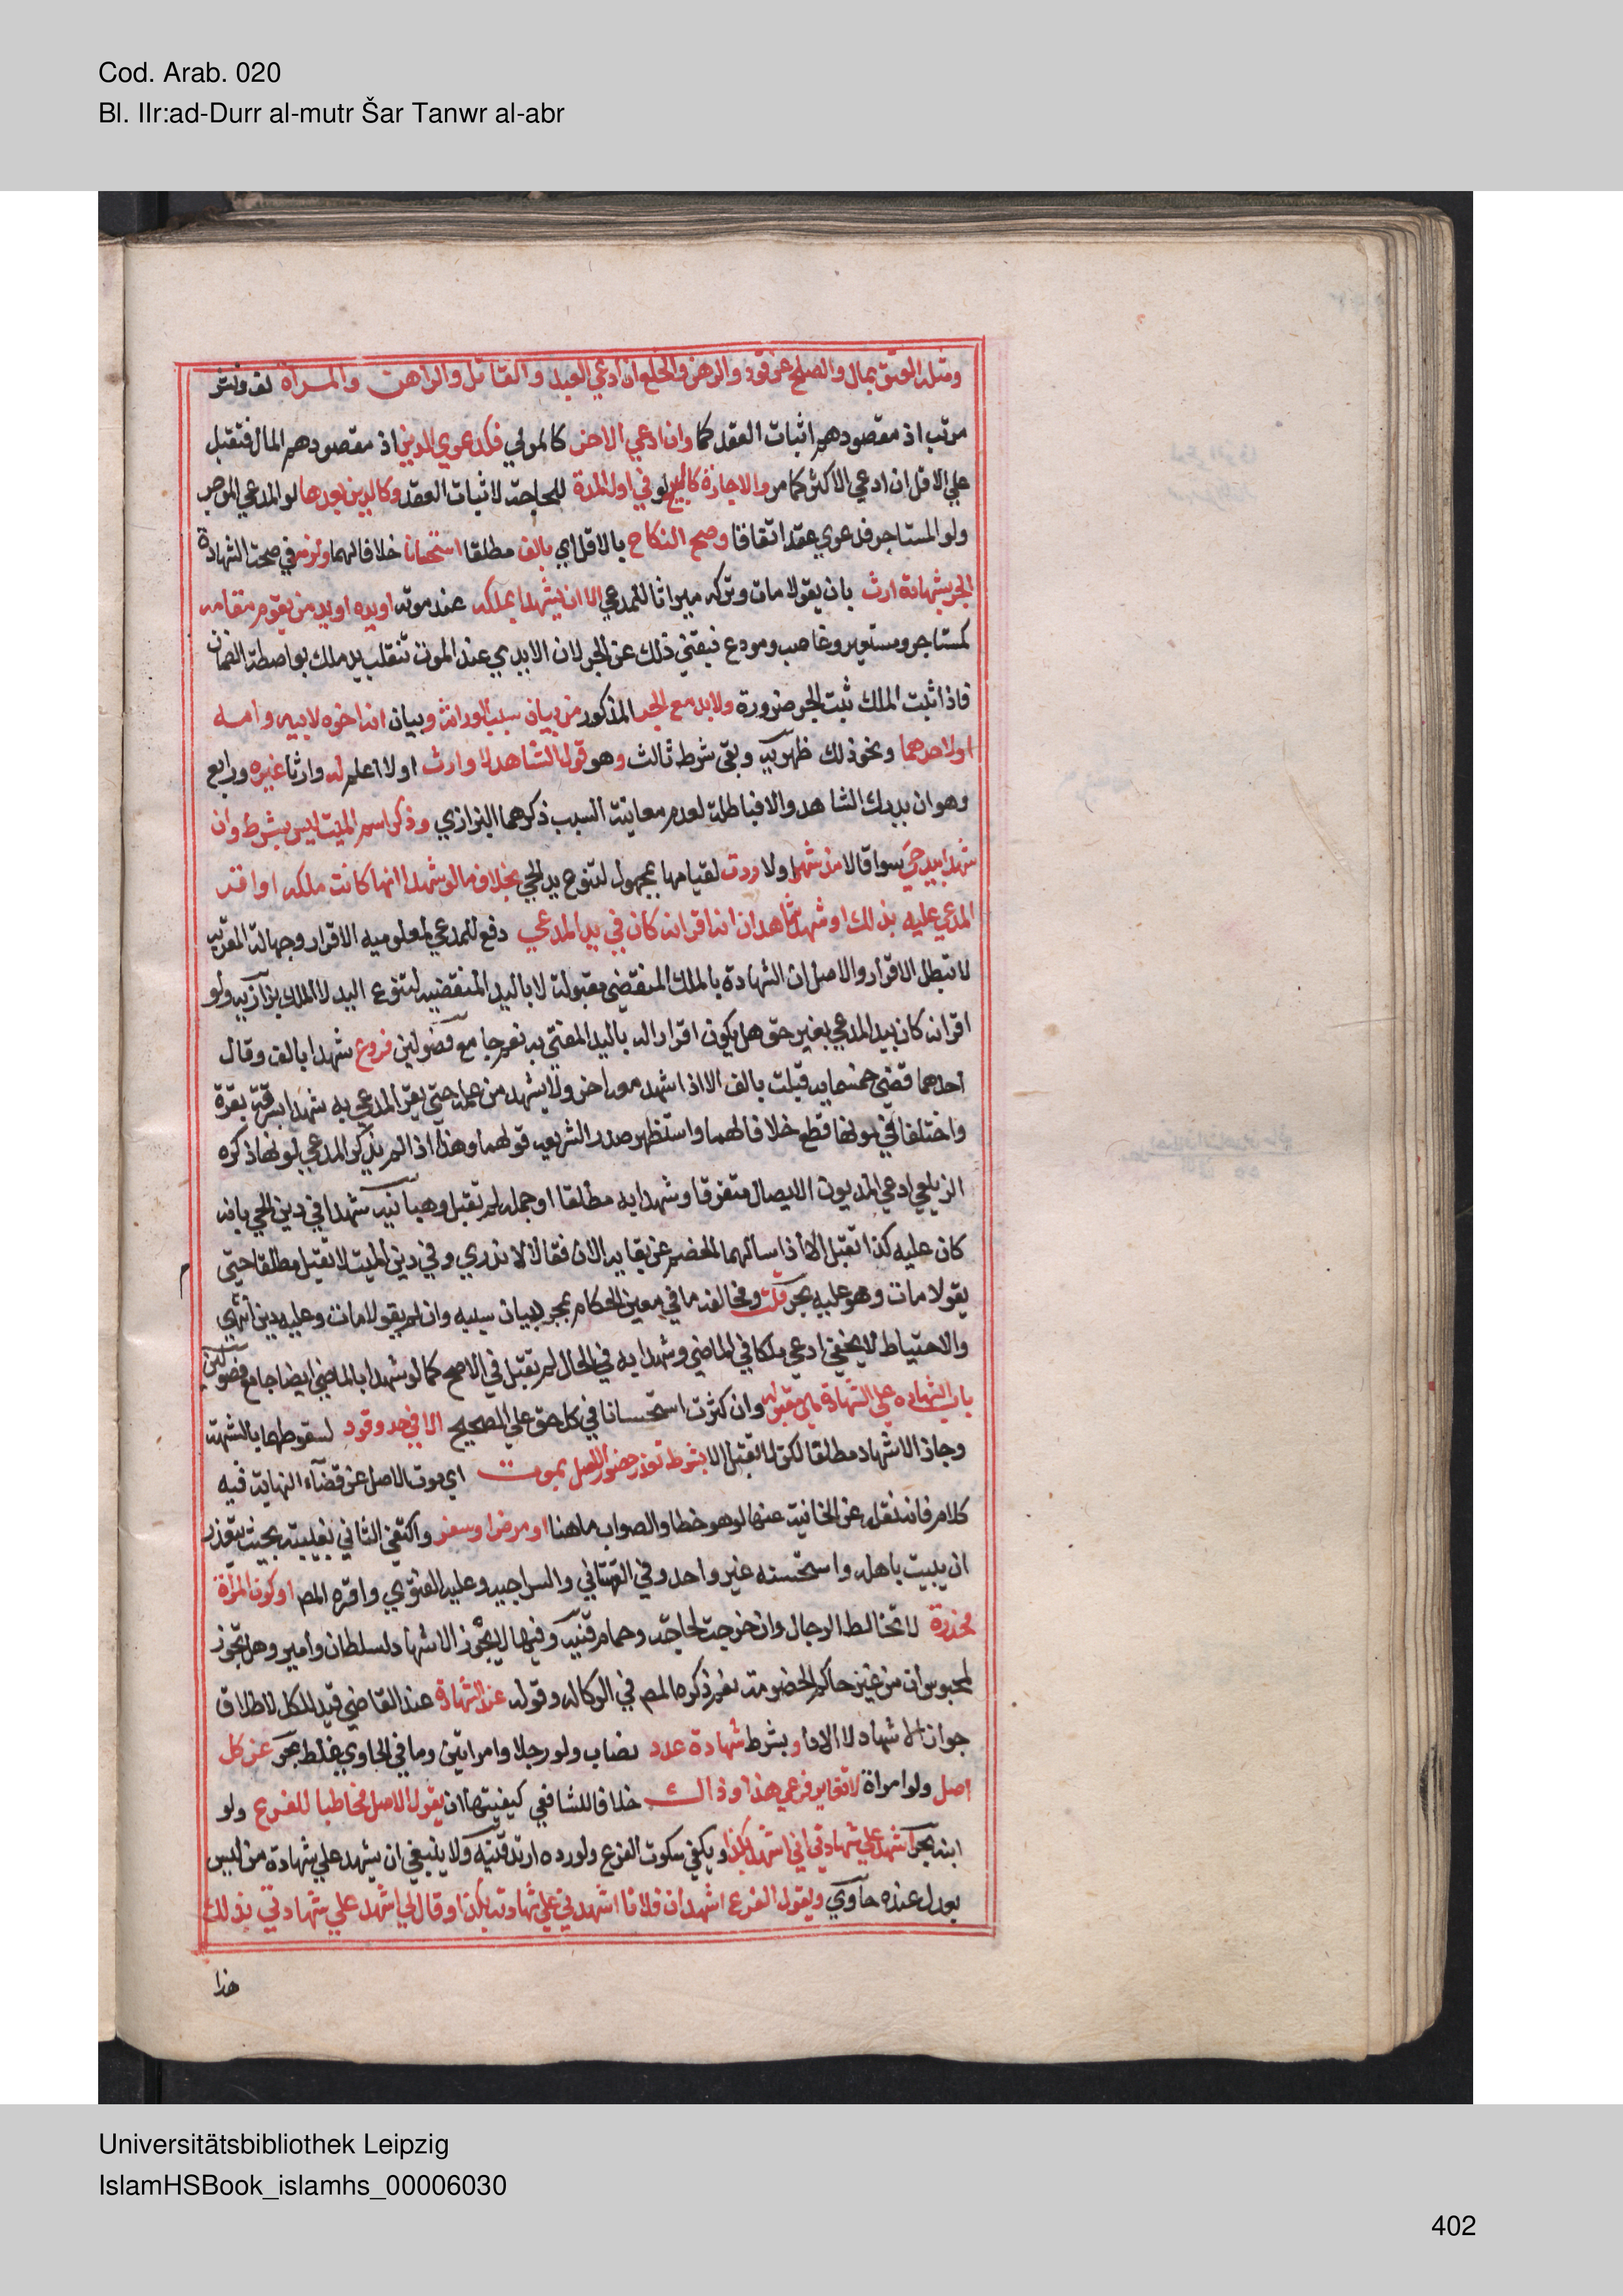 Cod. Arab. 020
Bl. IIr:ad-Durr al-mutr Šar Tanwr al-abr
ومثله العتق بمال والصلح عن قود والرهن والخلع ان ادعي العبد والقاتل والراهن والمراة لف ونشر
مرتب اذ مقصودهم اثبات العقد كما وان ادعي الاخر كالمولي فكدعوي الدين اذ مقصودهم المال فتقبل
علي الاقل ان ادعي الاكثر كما مر والاجارة كالبيع لو في اول المدة للحاجة لاثبات العقد وكالدين بعدها لو المدعي الموجر
ولو المستاجر فدعوي عقد اتفاقا وصح النكاح بالاقل اي بالف مطلقا استحسانا خلافا لهما ولزم في صحة الشهادة
الجر بشهادة ارث بان يقولا مات وتركه ميراثا للمدعي الا ان يشهدا بملكه عند موته او يده او يد من يقوم مقامه
كمستاجر ومستعير وغاصب ومودع فيغني ذلك عن الجر لان الايدي عند الموت تنقلب يد ملك بواصطة الضمان
فاذا ثبت الملك ثبت الجر ضرورة ولا بد مع الجر المذكور من بيان سبب الوراثة وبيان انه اخوه لابيه وامه
او لاحدهما ونحو ذلك ظهيرية وبقي شرط ثالث وهو قول الشاهد لا وارث او لا اعلم له وارثا غيره ورابع
وهو ان يدرك الشاهد والا فباطلة لعدم معاينة السبب ذكرهما البزازي وذكر اسم الميت ليس بشرط وان
شهدا بيد حي سوا قالا مذ شهر او لا ردت لقيامها بمجهول لتنوع يد الحي بخلاف ما لو شهدا انها كانت ملكه او اقر
المدعي عليه بذلك او شهد شاهدان انه اقر انه كان في يد المدعي دفع للمدعي لمعلومية الاقرار وجهالة المقر به
لا تبطل الاقرار والاصل ان الشهادة بالملك المنقضي مقبولة لا باليد المنقضية لتنوع اليد لا الملك بزازية ولو
اقر انه كان بيد المدعي بغير حق هل يكون اقرارا له باليد المفتي به نعم جامع فصولين فروع شهدا بالف وقال
احدهما قضي خمسماية قبلت بالف الا اذا شهد معه اخر ولا يشهد من علمه حتي يقر المدعي به شهدا بسرقة بقرة
واختلفا في لونها قطع خلافا لهما واستظهر صدر الشريعة قولهما وهذا اذا لم يذكر المدعي لونها ذكره
الزيلعي ادعي المديون الايصال متفرقا وشهدا به مطلقا او جملة لم تقبل وهبانية شهدا في دين الحي بانه
كان عليه كذا تقبل الا اذا سالهما الخصم عن بقايه الان فقالا لا ندري وفي دين الميت لا تقبل مطلقا حتي
يقولا مات وهو عليه بحر قلت ومخالفه ما في معين الحكام بمجرد بيان سببه وان لم يقولا مات وعليه دين انتهي
والاحتياط لا يخفي ادعي ملكا في الماضي وشهدا به في الحال لم تقبل في الاصح كما لو شهدا بالماضي ايضا جامع فصولين
باب الشهادة علي الشهادة هي مقبولة وان كثرت استحسانا في كل حق علي الصحيح الا في حد وقود لسقوطهما بالشبهة
وجاز الاشهاد مطلقا لكن لا تقبل الا بشرط تعذر حضور الاصل بموت اي موت الاصل عن قضاء النهاية فيه
كلام فانه نقله عن الخانية عنها لو هو خطا والصواب ما هنا او مرض او سفر واكتفي الثاني بغيبته بحيث يتعذر
ان يبيت باهله واستحسنه غير واحد وفي القهستاني والسراجية وعليه الفتوي واقره المص او كون المراة
مخدرة لا تخالط الرجال وان خرجت لحاجة وحمام قنية وفيها لا يجوز الاشهاد لسلطان وامير وهل يجوز
لمحبوس ان من غير حاكم الخصومة نعم ذكره المص في الوكالة وقوله عند الشهادة عند القاضي قيد للكل لاطلاق
جواز الاشهاد لا الادا وبشرط شهادة عدد نصاب ولو رجلا وامراتين وما في الحاوي غلط بحر عن كل
اصل ولو امراة لا تغاير فرعي هذا وذاك خلافا للشافعي كيفيتها ان يقول الاصل مخاطبا للفرع ولو
ابنه بحر اشهد علي شهادتي اني اشهد بكذا ويكفي سكوت الفرع ولو رده ارتد قنية ولا ينبغي ان يشهد علي شهادة من ليس
بعدل عنده حاوي ويقول الفرع اشهد ان فلانا اشهدني علي شهادته بكذا وقال لي اشهد علي شهادتي بذلك
هذا
Universitätsbibliothek Leipzig
IslamHSBook_islamhs_00006030
402